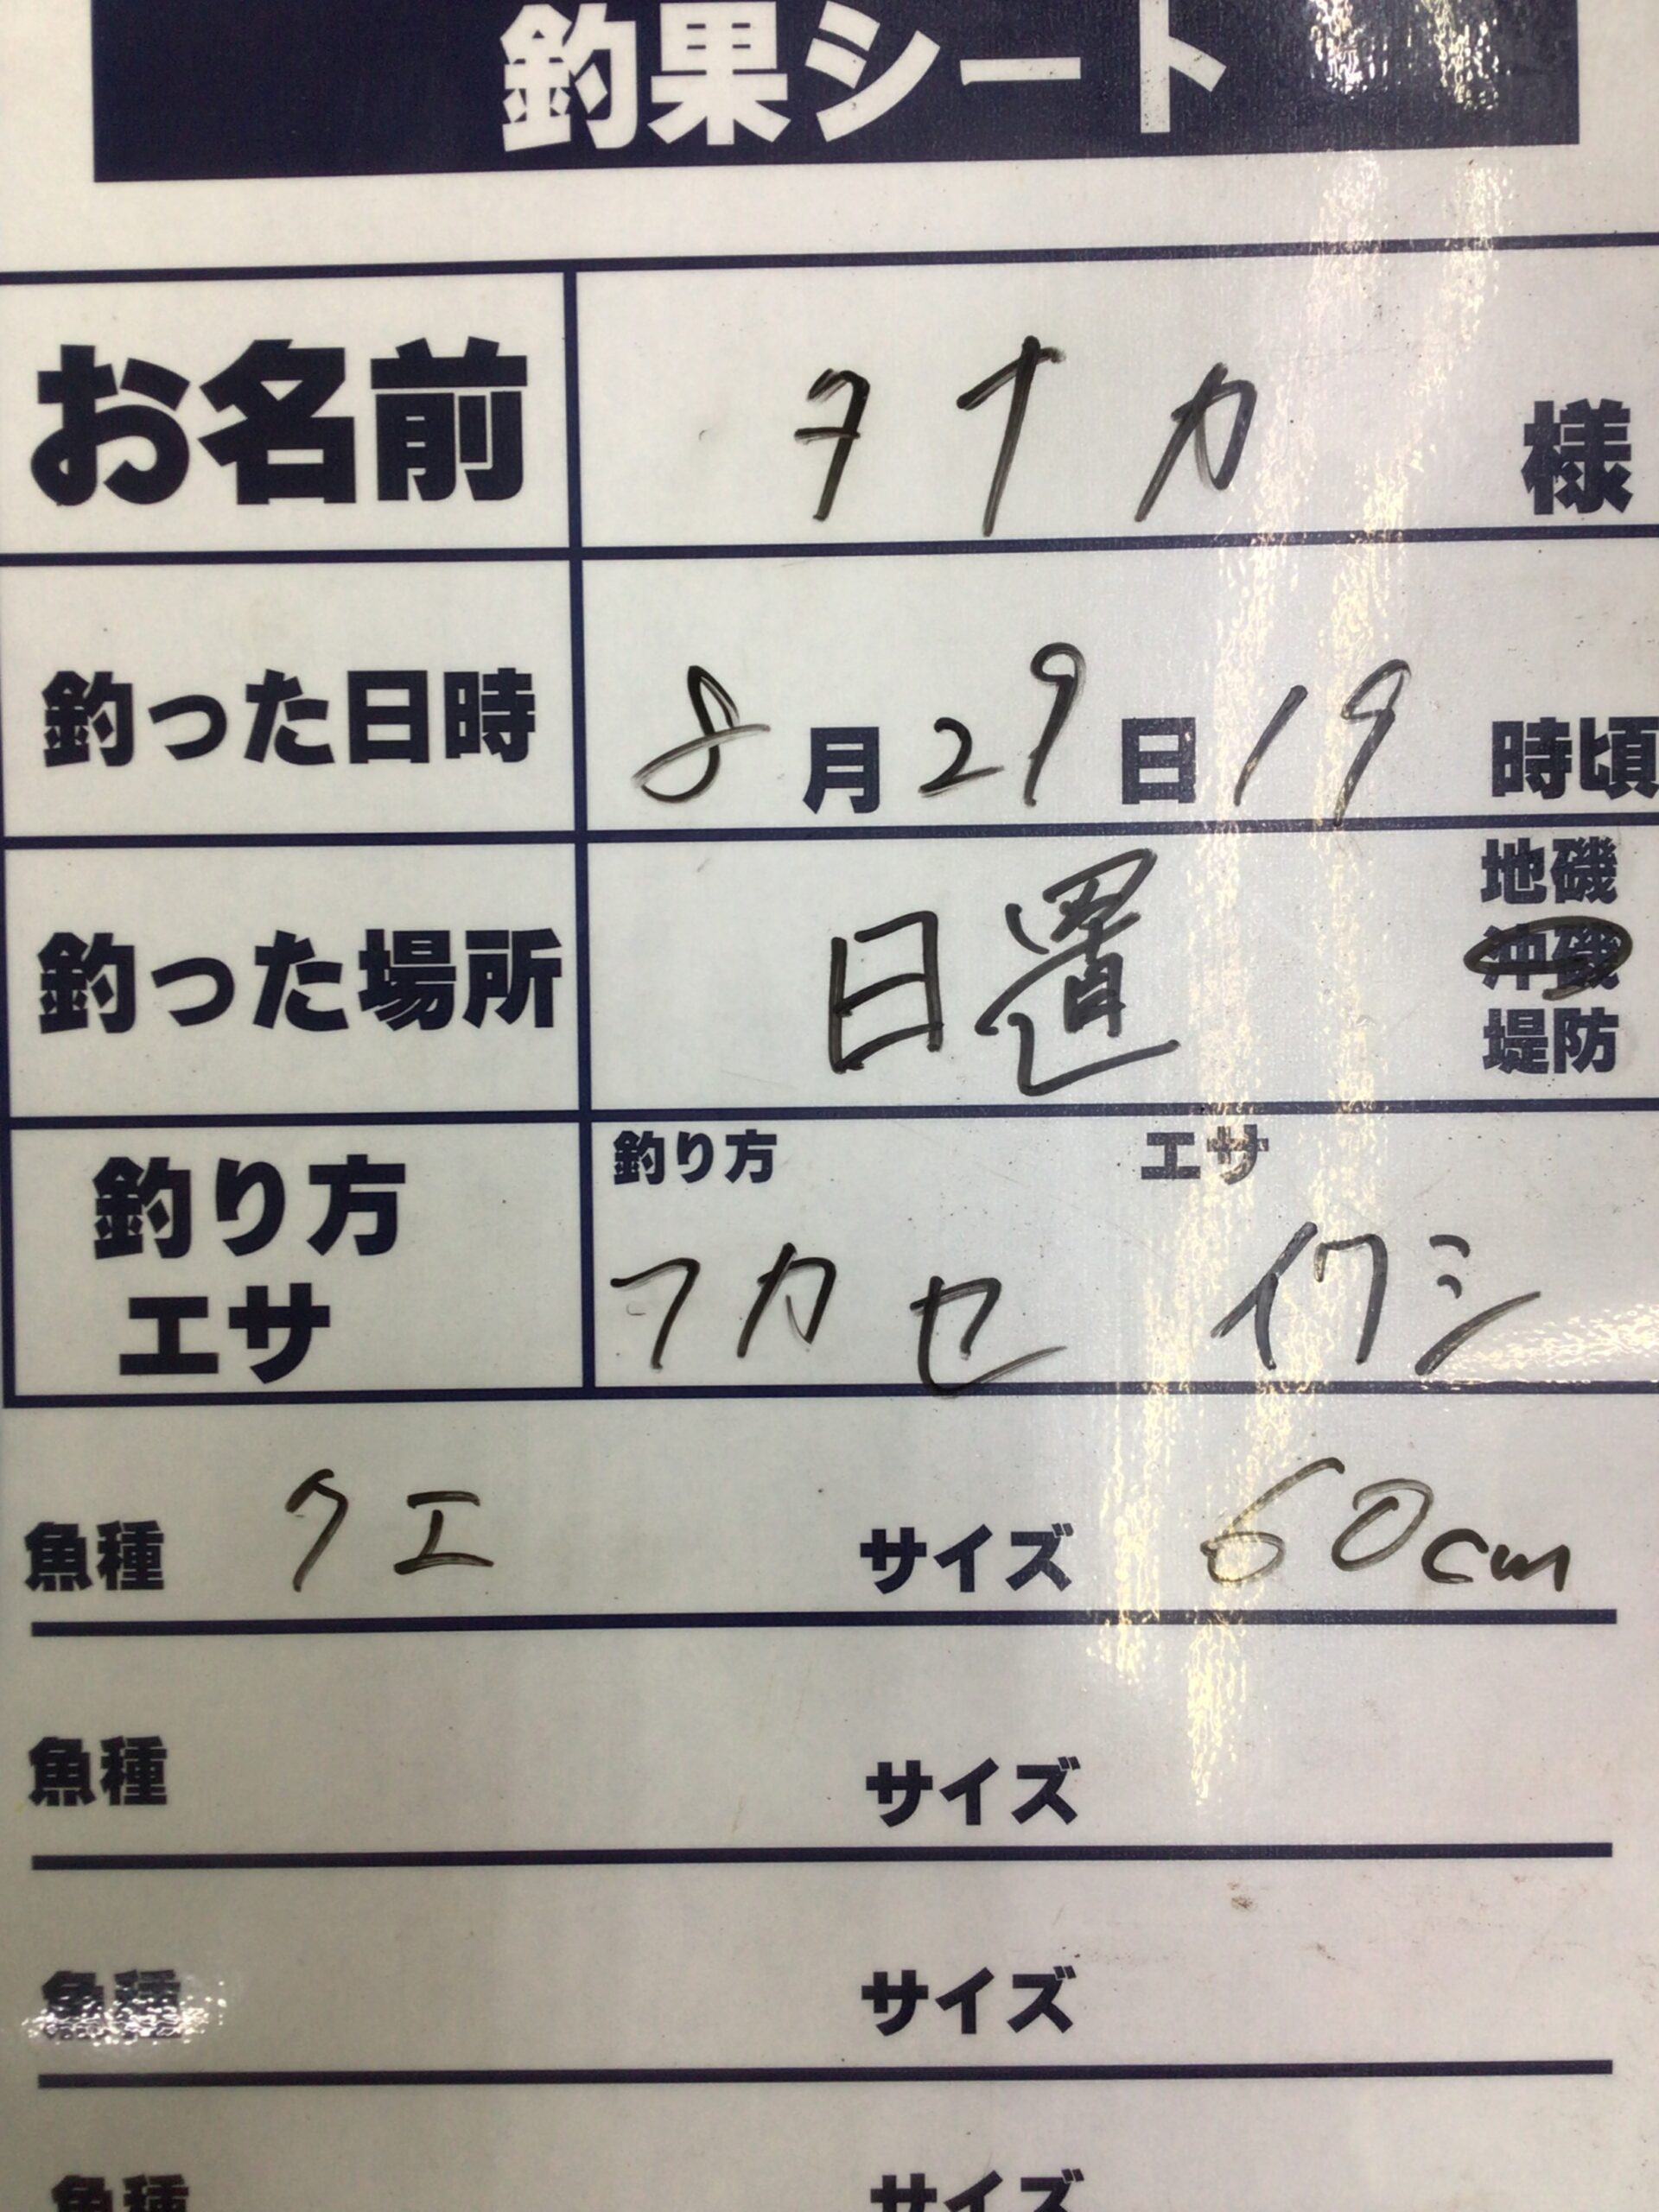 釣果シート
お名前 タナカ 様
釣った日時 8月29日19時頃
釣った場所 日置 地磯
沖磯
堤防
釣り方 エサ
釣り方 エサ
フカセ イワシ
魚種 クエ サイズ 60cm
魚種 サイズ
魚種 サイズ
魚種 サイズ